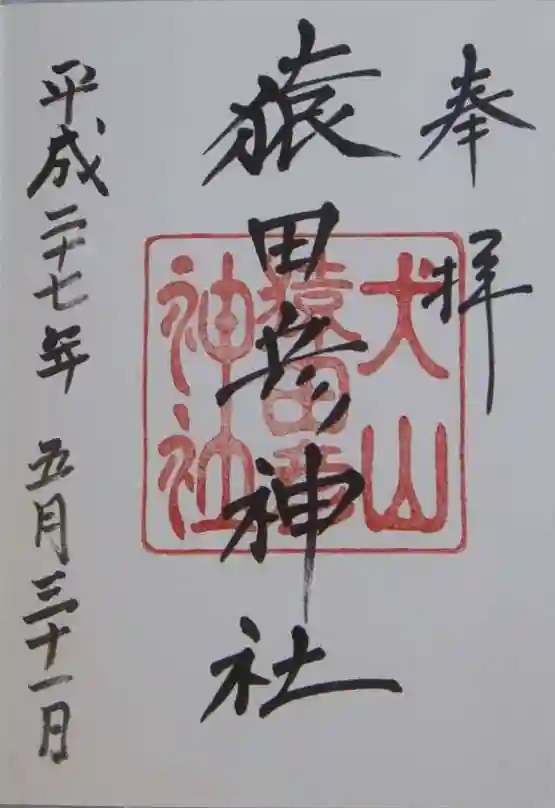 奉拝
犬山
猿田彦神社
猿田彦
神社
平成二十七年 五月三十一日